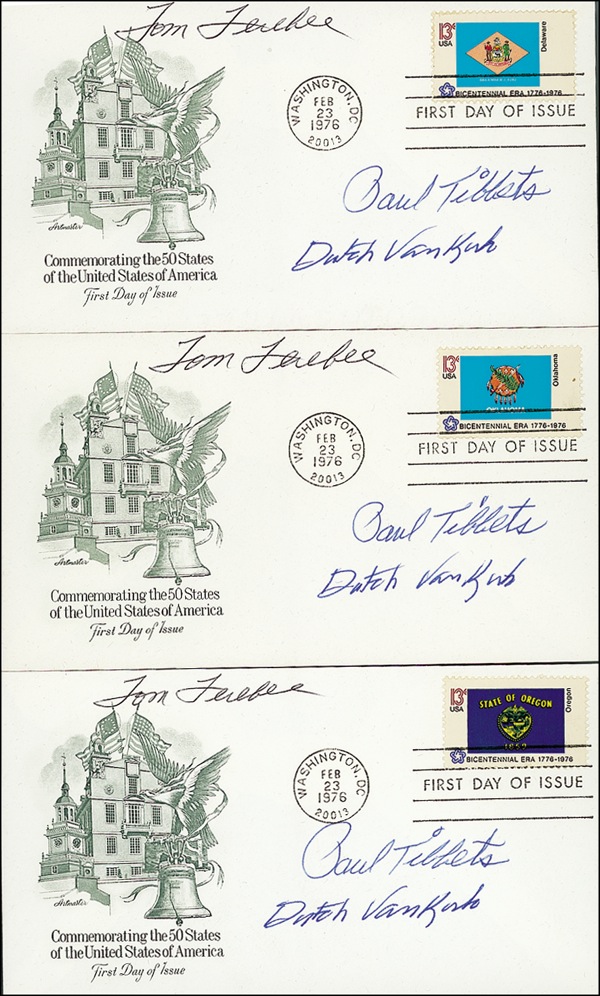 Tom Ferebee
13¢
USA
Delaware
BICENTENNIAL ERA 1776-1976
WASHINGTON, DC
FEB
23
1976
20013
FIRST DAY OF ISSUE
Paul Tibbets
Dutch VanKirk
Artmaster
Commemorating the 50 States
of the United States of America
First Day of Issue
Tom Ferebee
13¢
USA
OKLAHOMA
Oklahoma
BICENTENNIAL ERA 1776-1976
WASHINGTON, DC
FEB
23
1976
20013
FIRST DAY OF ISSUE
Paul Tibbets
Dutch VanKirk
Artmaster
Commemorating the 50 States
of the United States of America
First Day of Issue
Tom Ferebee
13¢
USA
STATE OF OREGON
1859
Oregon
BICENTENNIAL ERA 1776-1976
WASHINGTON, DC
FEB
23
1976
20013
FIRST DAY OF ISSUE
Paul Tibbets
Dutch VanKirk
Artmaster
Commemorating the 50 States
of the United States of America
First Day of Issue